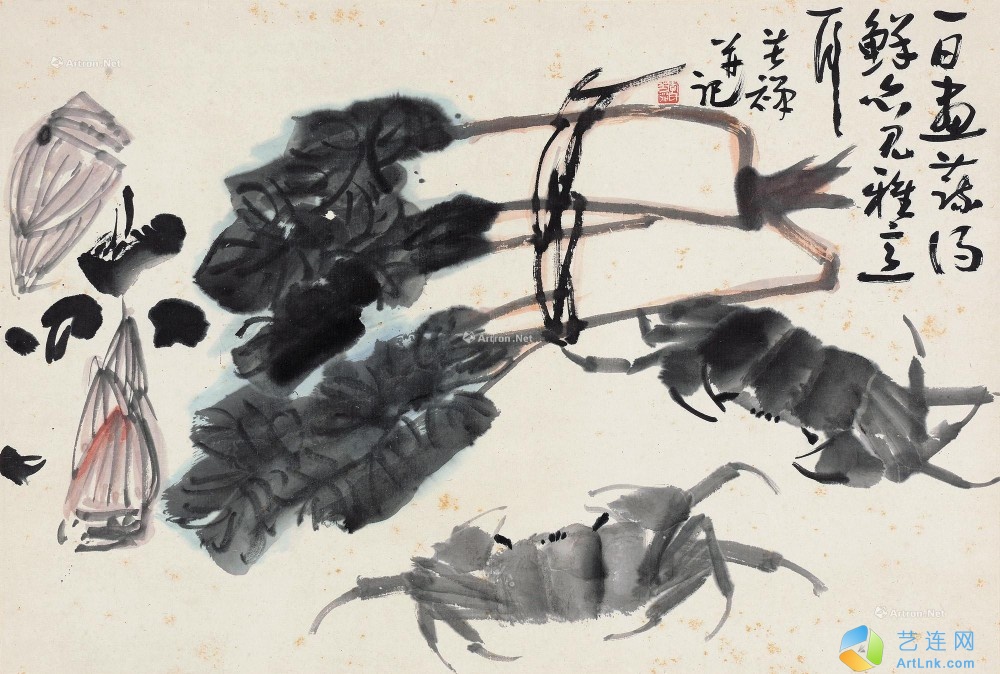 一日畫蔬得
鮮亦見雅意
苦禅
并记
Artron.Net
Artron.Net
Artron.Net
艺连网
ArtLnk.com